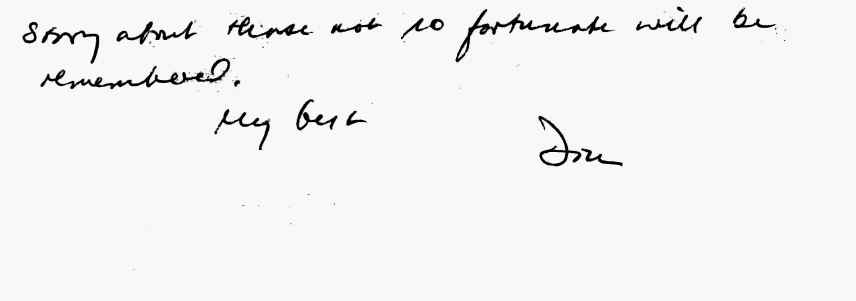 Story about those not so fortunate will be
remembered.
My best
Don